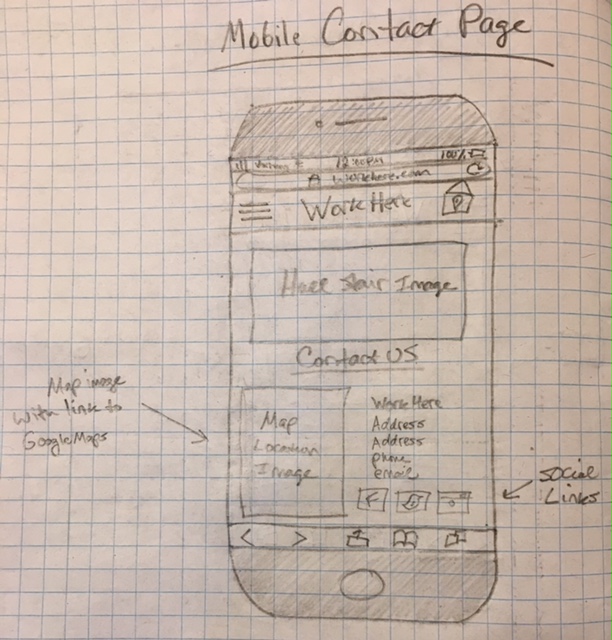 Mobile Contact Page
12:00PM 100%
workhere.com
Work Here
P
Image
Contact US
Map image
with link to
Google Maps
Map
Location
Image
Work Here
Address
Address
phone
email
F
social
Links